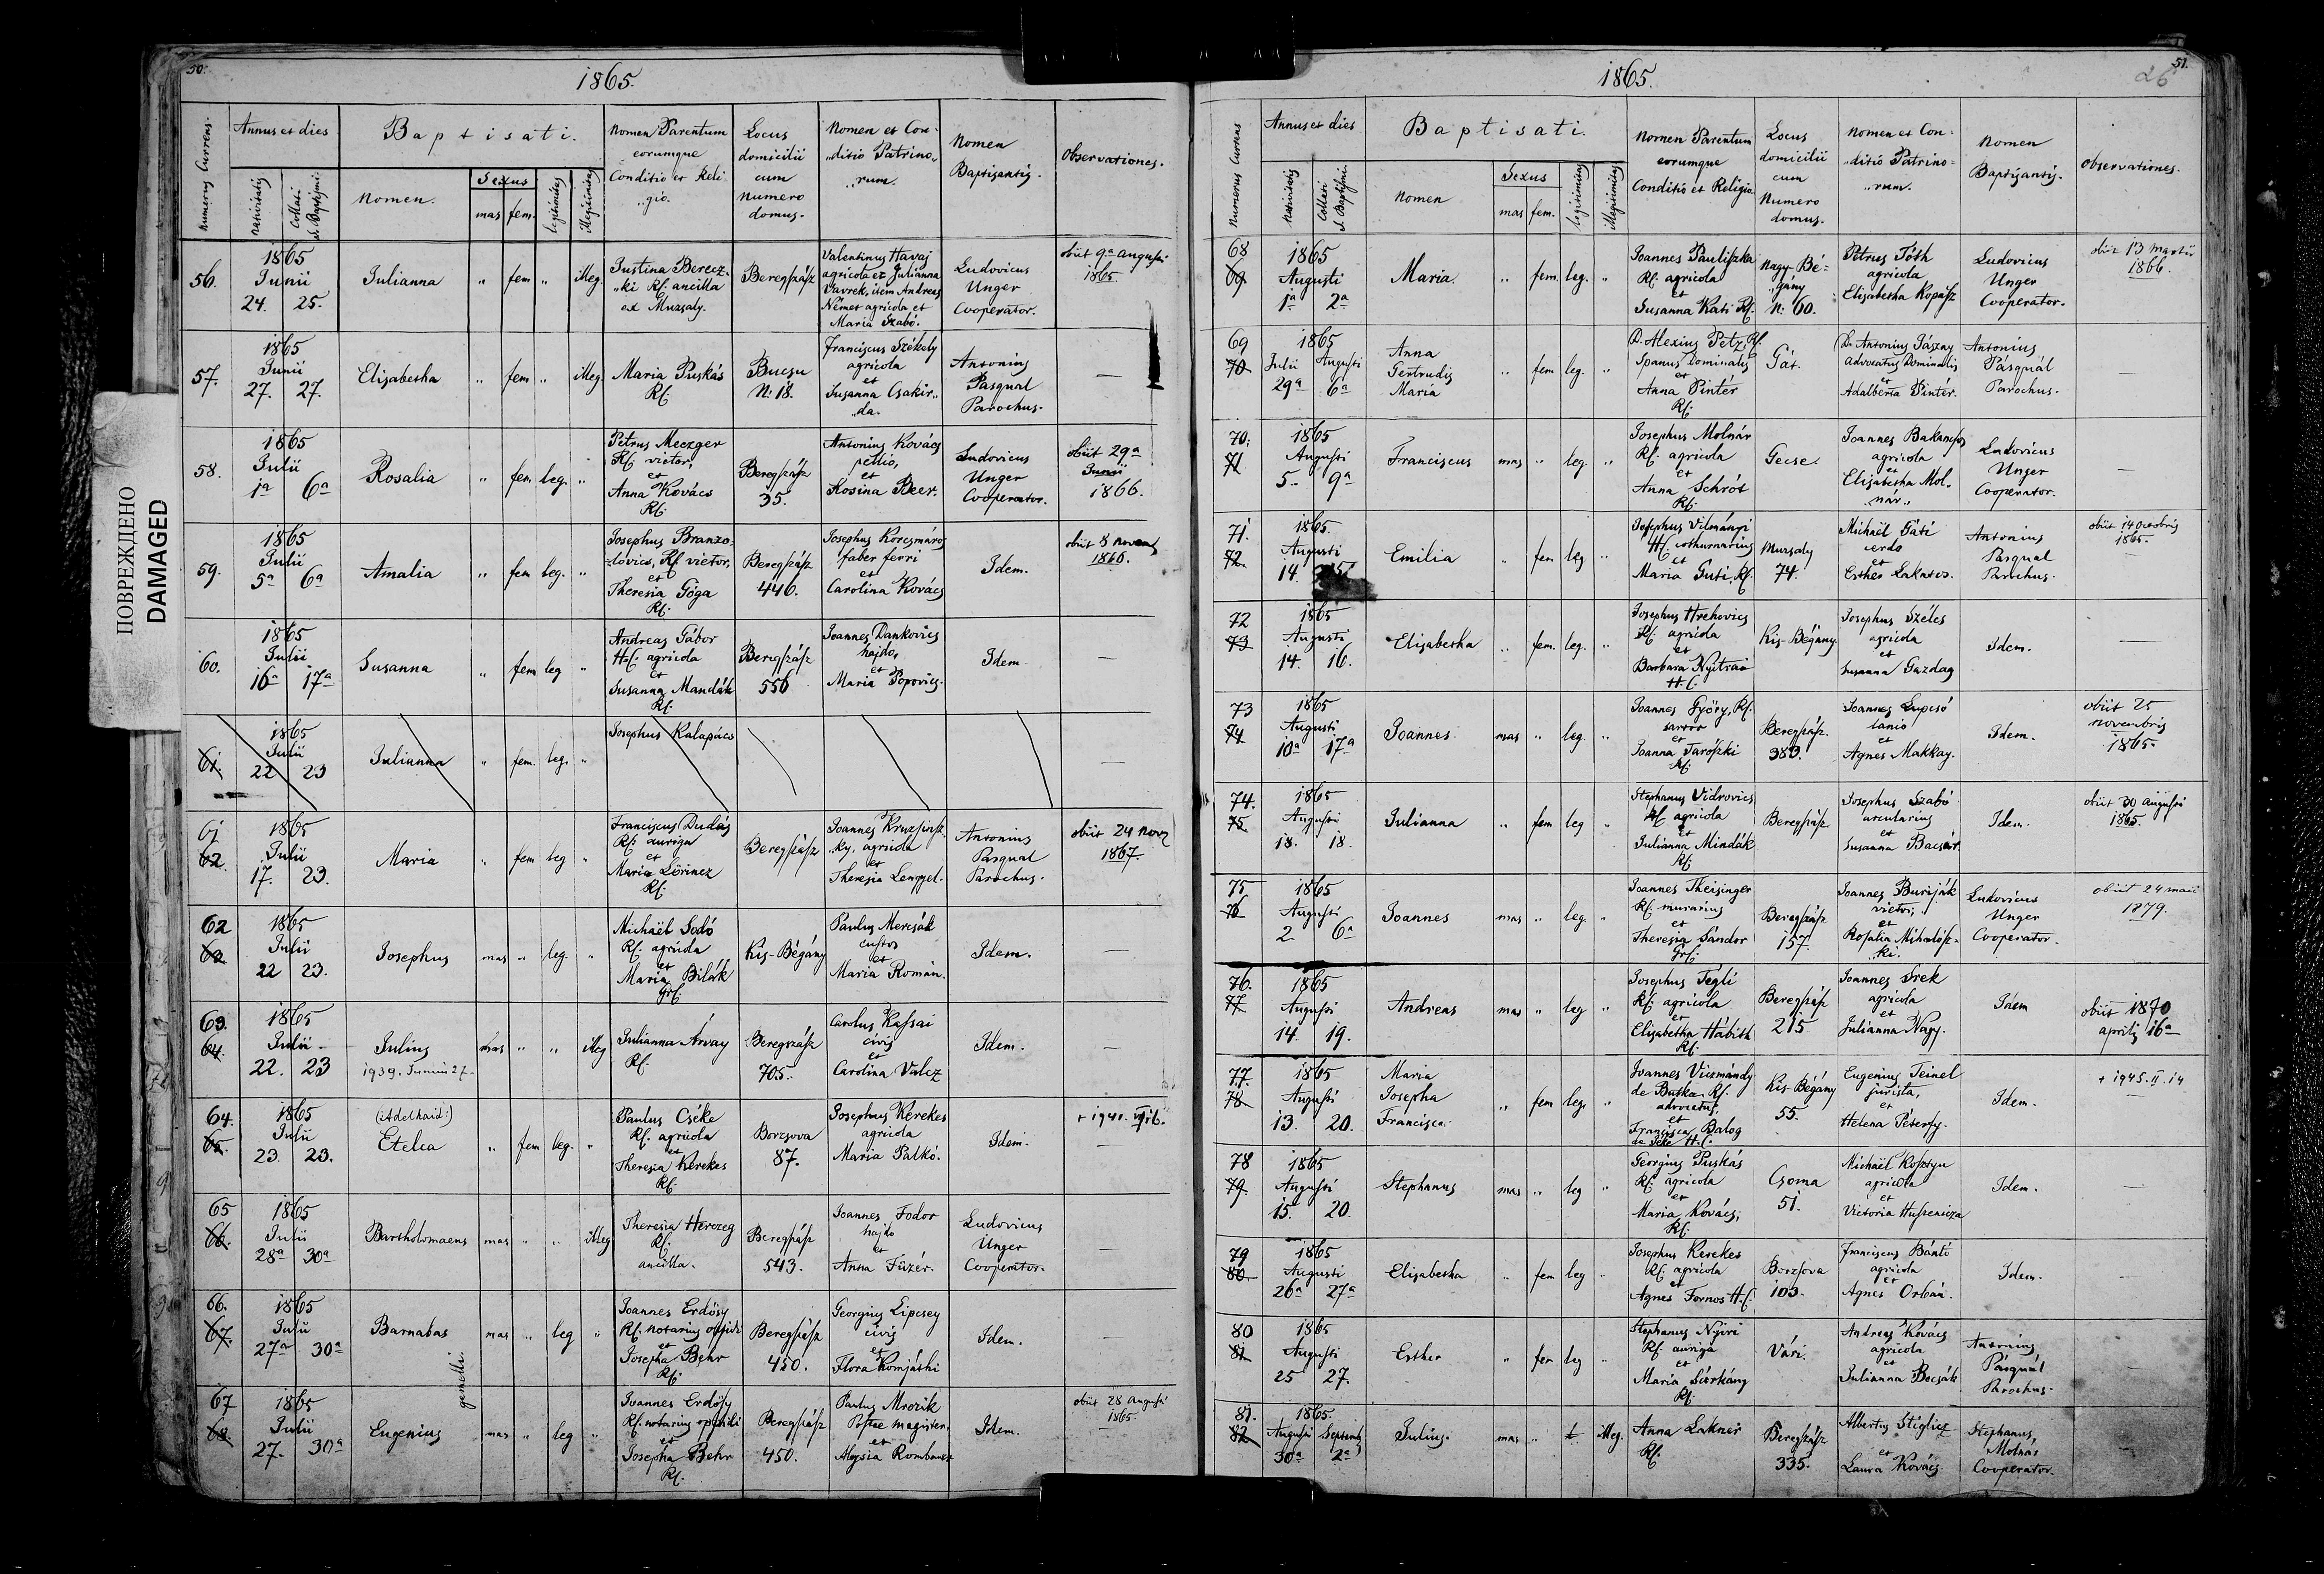 50.
1865.
Numerus Currens.
Annus et dies
Baptisati.
Nomen Parentum eorumque Conditio et Reli„gio.
Locus domicilii cum Numero domus.
Nomen et Con„ditio Patrino„rum.
Nomen Baptizantis.
Observationes.
Nativitatis
Collati S. Baptismi
Nomen.
Sexus
mas fem.
legitimus
illegitimus
56. 1865 Junii 24. 25. Julianna „ fem „ illeg. Justina Berecz„ki Rf. ancilla ex Muzsaly. Beregszász Valentinus Havaj agricola et Julianna Vavrek, item Andreas Német agricola et Maria Szabó. Ludovicus Unger Cooperator. obiit 9ª augusti 1865.
57. 1865 Junii 27. 27. Elisabetha „ fem „ illeg Maria Puskás Rf. Bucsu N: 18. Franciscus Székely agricola et Susanna Csakir„da. Antonius Pasqual Parochus. —
58. 1865 Julii 1ª 6ª Rosalia „ fem leg. „ Petrus Meczger Rf. vietor, et Anna Kovács Rf. Beregszász 35. Antonius Kovács pellio, et Rosina Beer. Ludovicus Unger Cooperator. obiit 29ª Junii 1866.
59. 1865 Julii 5ª 6ª Amalia „ fem leg. „ Josephus Branzo-lovics, Rf. vietor, et Theresia Góga Rf. Beregszász 446. Josephus Korcsmáros faber ferri et Carolina Kovács Idem. obiit 8 novem 1866.
60. 1865 Julii 16ª 17ª Susanna „ fem leg „ Andreas Gábor H.C. agricola et Susanna Mandák Rf. Beregszász 556 Joannes Dankovics hajdo, et Maria Popovics. Idem —
61. 1865 Julii 22 23 Julianna „ fem. leg. „ Josephus Kalapács —
61 62. 1865 Julii 17. 23. Maria „ fem leg „ Franciscus Dudás Rf. auriga et Maria Lőrincz Rf. Beregszász Joannes Kruzsinsz„ky, agricola et Theresia Lengyel. Antonius Pasqual Parochus. obiit 24 nov 1867.
62 63. 1865 Julii 22 23. Josephus mas „ leg. „ Michaël Sodó Rf. agricola et Maria Bilák Grf. Kis-Bégány Paulus Mercsák custos et Maria Román. Idem. —
63. 64. 1865 Julii 22. 23 Julius 1939. Junius 27. mas „ „ illeg Julianna Árvay Rf. Beregszász 705. Carolus Kassai civis et Carolina Valcz Idem. —
64. 65. 1865 Julii 23. 23. (:Adelhaid:) Etelca „ fem leg. „ Paulus Cséke Rf. agricola et Theresia Kerekes Rf. Borzsova 87. Josephus Kerekes agricola Maria Palkó. Idem. —
65 66. 1865 Julii 28ª 30ª Bartholomaeus mas „ „ illeg Theresia Herczeg Rf. ancilla. Beregszász 543. Joannes Fodor hajdo et Anna Füzér. Ludovicus Unger Cooperator. —
66. 67. 1865 Julii 27ª 30ª Barnabas mas „ leg „ Joannes Erdősy Rf. notarius oppidi et Josepha Behr Rf. Beregszász 450. Georgius Lipcsey civis et Flora Komjáthi Idem. —
gemelli.
67 68. 1865 Julii 27. 30ª Eugenius mas „ leg „ Joannes Erdősy Rf. notarius oppidi et Josepha Behr Rf. Beregszász 450. Paulus Mrozik Postae magister, et Aloysia Rombauer Idem. obiit 28 augusti 1865.
51.
26
1865.
Numerus Currens
Annus et dies
Baptisati.
Nomen Parentum eorumque Conditio et Religio.
Locus domicilii cum Numero domus.
Nomen et Con„ditio Patrino„rum.
Nomen Baptizantis.
Observationes.
Nativitatis
Collati S. Baptismi.
Nomen
Sexus
mas fem.
legitimus
illegitimus
68 69 1865 Augusti 1ª 2ª Maria. „ fem. leg. „ Joannes Pauliszka Rf. agricola et Susanna Kati Rf. Nagy-Bé„gány N: 60. Petrus Tóth agricola Elisabetha Kopász Ludovicus Unger Cooperator. obiit 13 martii 1866.
69 70 1865 Julii Augusti 29ª 6ª Anna Gertrudis Maria „ fem leg. „ D. Alexius Petz, Rf. Spanus Dominalis et Anna Pintér Rf. Gát. D. Antonius Jászay advocatus Dominalis et Adalberta Pintér. Antonius Pásquál Parochus. —
70. 71 1865 Augusti 5. 9ª Franciscus mas „ leg. „ Josephus Molnár Rf. agricola et Anna Schröt Rf. Gecse. Joannes agricola et Elisabetha Mol„nár„ Ludovicus Unger Cooperator. —
71. 72. 1865. Augusti 14. Emilia „ fem leg „ Josephus Vilmányi H.C. cothurnarius et Maria Guti, Rf. Muzsaly 74. Michaël Gáti cerdo et Esther Lakatos. Antonius Pasqual Parochus. obiit 14 octobris 1865.
72 73 1865 Augusti 14. 16. Elisabetha „ fem. leg. „ Josephus Hrehovics Rf. agricola et Barbara Nyitrai H.C. Kis-Bégány Josephus Széles agricola et Susanna Gazdag Idem. —
73 74 1865 Augusti 10ª 17ª Joannes. mas „ leg. „ Joannes Győry, Rf. sartor et Joanna Tarószki Rf. Beregszász 383. Joannes Lupcsó lanio et Agnes Makkay. Idem. obiit 25 novembris 1865.
74. 75. 1865 Augusti 18. 18. Julianna „ fem leg „ Stephanus Vidrovics Rf. agricola et Julianna Mindák Rf. Beregszász Josephus Szabó arcularius et Susanna Idem. obiit 30 augusti 1865.
75 76 1865 Augusti 2. 6ª Joannes mas „ leg. „ Joannes Theisinger Rf. murarius et Theresia Sándor Grf. Beregszász 157. Joannes Buriják vietor, et Rosalia Miholisz„ki. Ludovicus Unger Cooperator. obiit 24 maii 1879.
76. 77 1865 Augusti 14. 19. Andreas mas „ leg „ Josephus Tegli Rf. agricola et Elisabetha Hábith Rf. Beregszász 215 Joannes Srek agricola et Julianna Nagy. Idem obiit 1870 aprilis 16ª
77. 78. 1865 Augusti 13. 20. Maria Josepha Francisca. „ fem leg. „ Joannes Viczmándy de Butka, Rf. advocatus, et Francisca Balog H.C. Kis-Bégány 55. Eugenius Teinel jurista, et Helena Péterfy. Idem. + 1945. II. 14
78 79. 1865 Augusti 15. 20. Stephanus mas „ leg „ Georgius Puskás Rf. agricola et Maria Kovács, Rf. Csoma 51. Michaël Kosztyu agricola et Victoria Huszenicza Idem. —
79 80. 1865 Augusti 26ª 27ª Elisabetha „ fem leg „ Josephus Kerekes Rf. agricola et Agnes Fornos H.C. Borzsova 103. Franciscus Bántó agricola et Agnes Orbán. Idem. —
80 81. 1865 Augusti 25 27. Esther „ fem leg „ Stephanus Nyiri Rf. auriga et Maria Sárkány Rf. Vári. Andreas Kovács agricola et Julianna Bocsák Antonius Pásquál Parochus. —
81. 82 1865. Augusti Septemb 30ª 2ª Julius. mas „ illeg. Anna Lakner Rf. Beregszász 335. Albertus Stiglicz et Laura Kovács. Stephanus Molnár Cooperator.
ПОВРЕЖДЕНО
DAMAGED